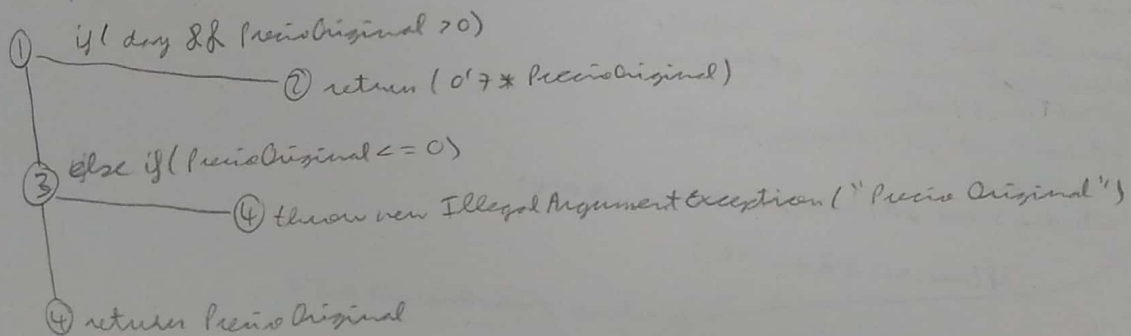 ① if( day && PrecioOriginal >0)
② return (0'7 * PrecioOriginal)
③ else if( PrecioOriginal <= 0)
④ throw new IllegalArgumentException ("Precio Original")
④ return Precio Original